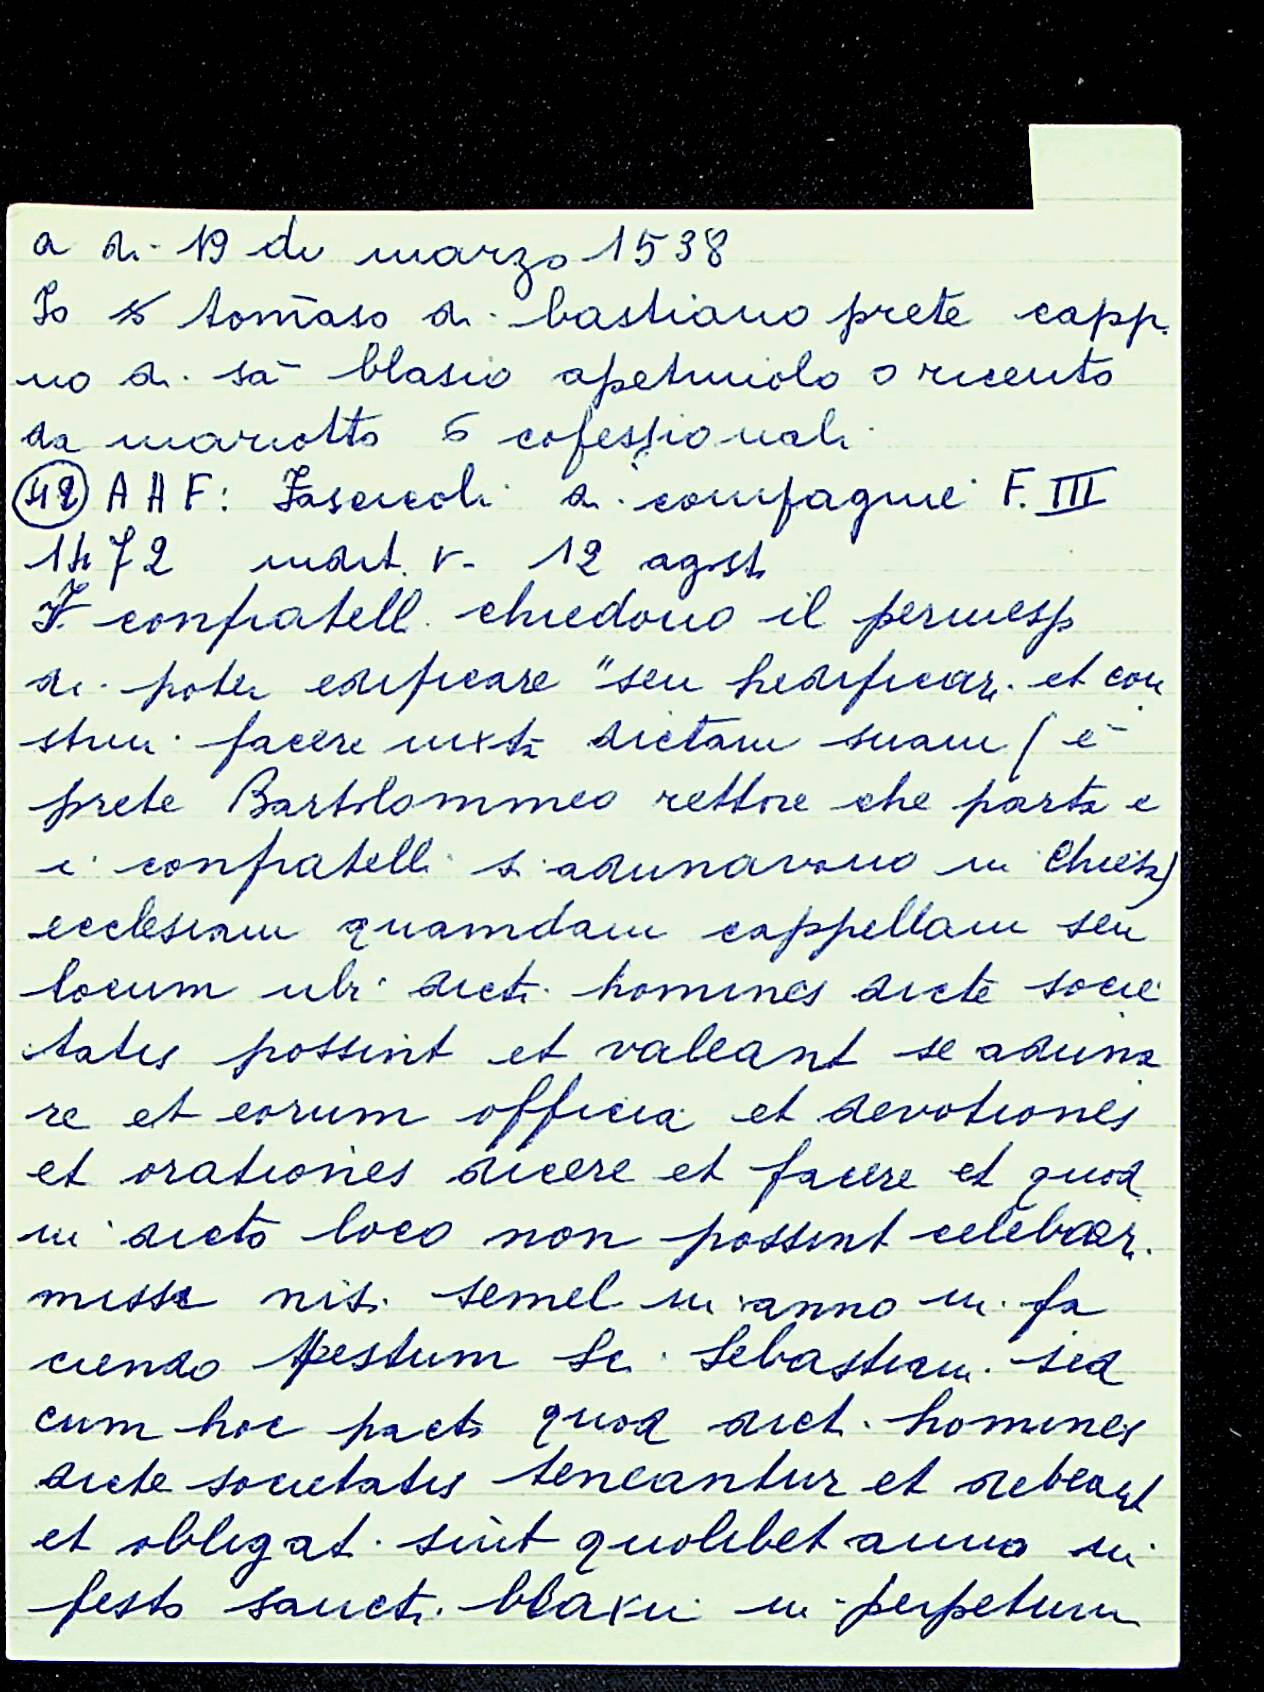 a di 19 di marzo 1538
Io tomaso di bastiano prete capp.
no di sā blasio apetriolo o ricevto
da mariotto 6 cofessionali
(42) A A F: Fascicoli di compagnie F. III
1472 indit. V. 12 agost.
I confratelli chiedono il permesso
di poter edificare "seu hedificari et con
strui facere iuxta dictam suam (è
prete Bartolommeo rettore che parla e
i confratelli si adunavano in Chiesa)
ecclesiam quamdam cappellam seu
locum ubi dicti homines dicte socie
tatis possint et valeant se aduna
re et eorum officia et devotiones
et orationes dicere et facere et quod
in dicto loco non possint celebrari
misse nisi semel in anno in fa
ciendo festum Sci Sebastiani sed
cum hoc pacto quod dicti homines
dicte societatis teneantur et debeant
et obligati sint quolibet anno in
festo sancti blaxii in perpetum